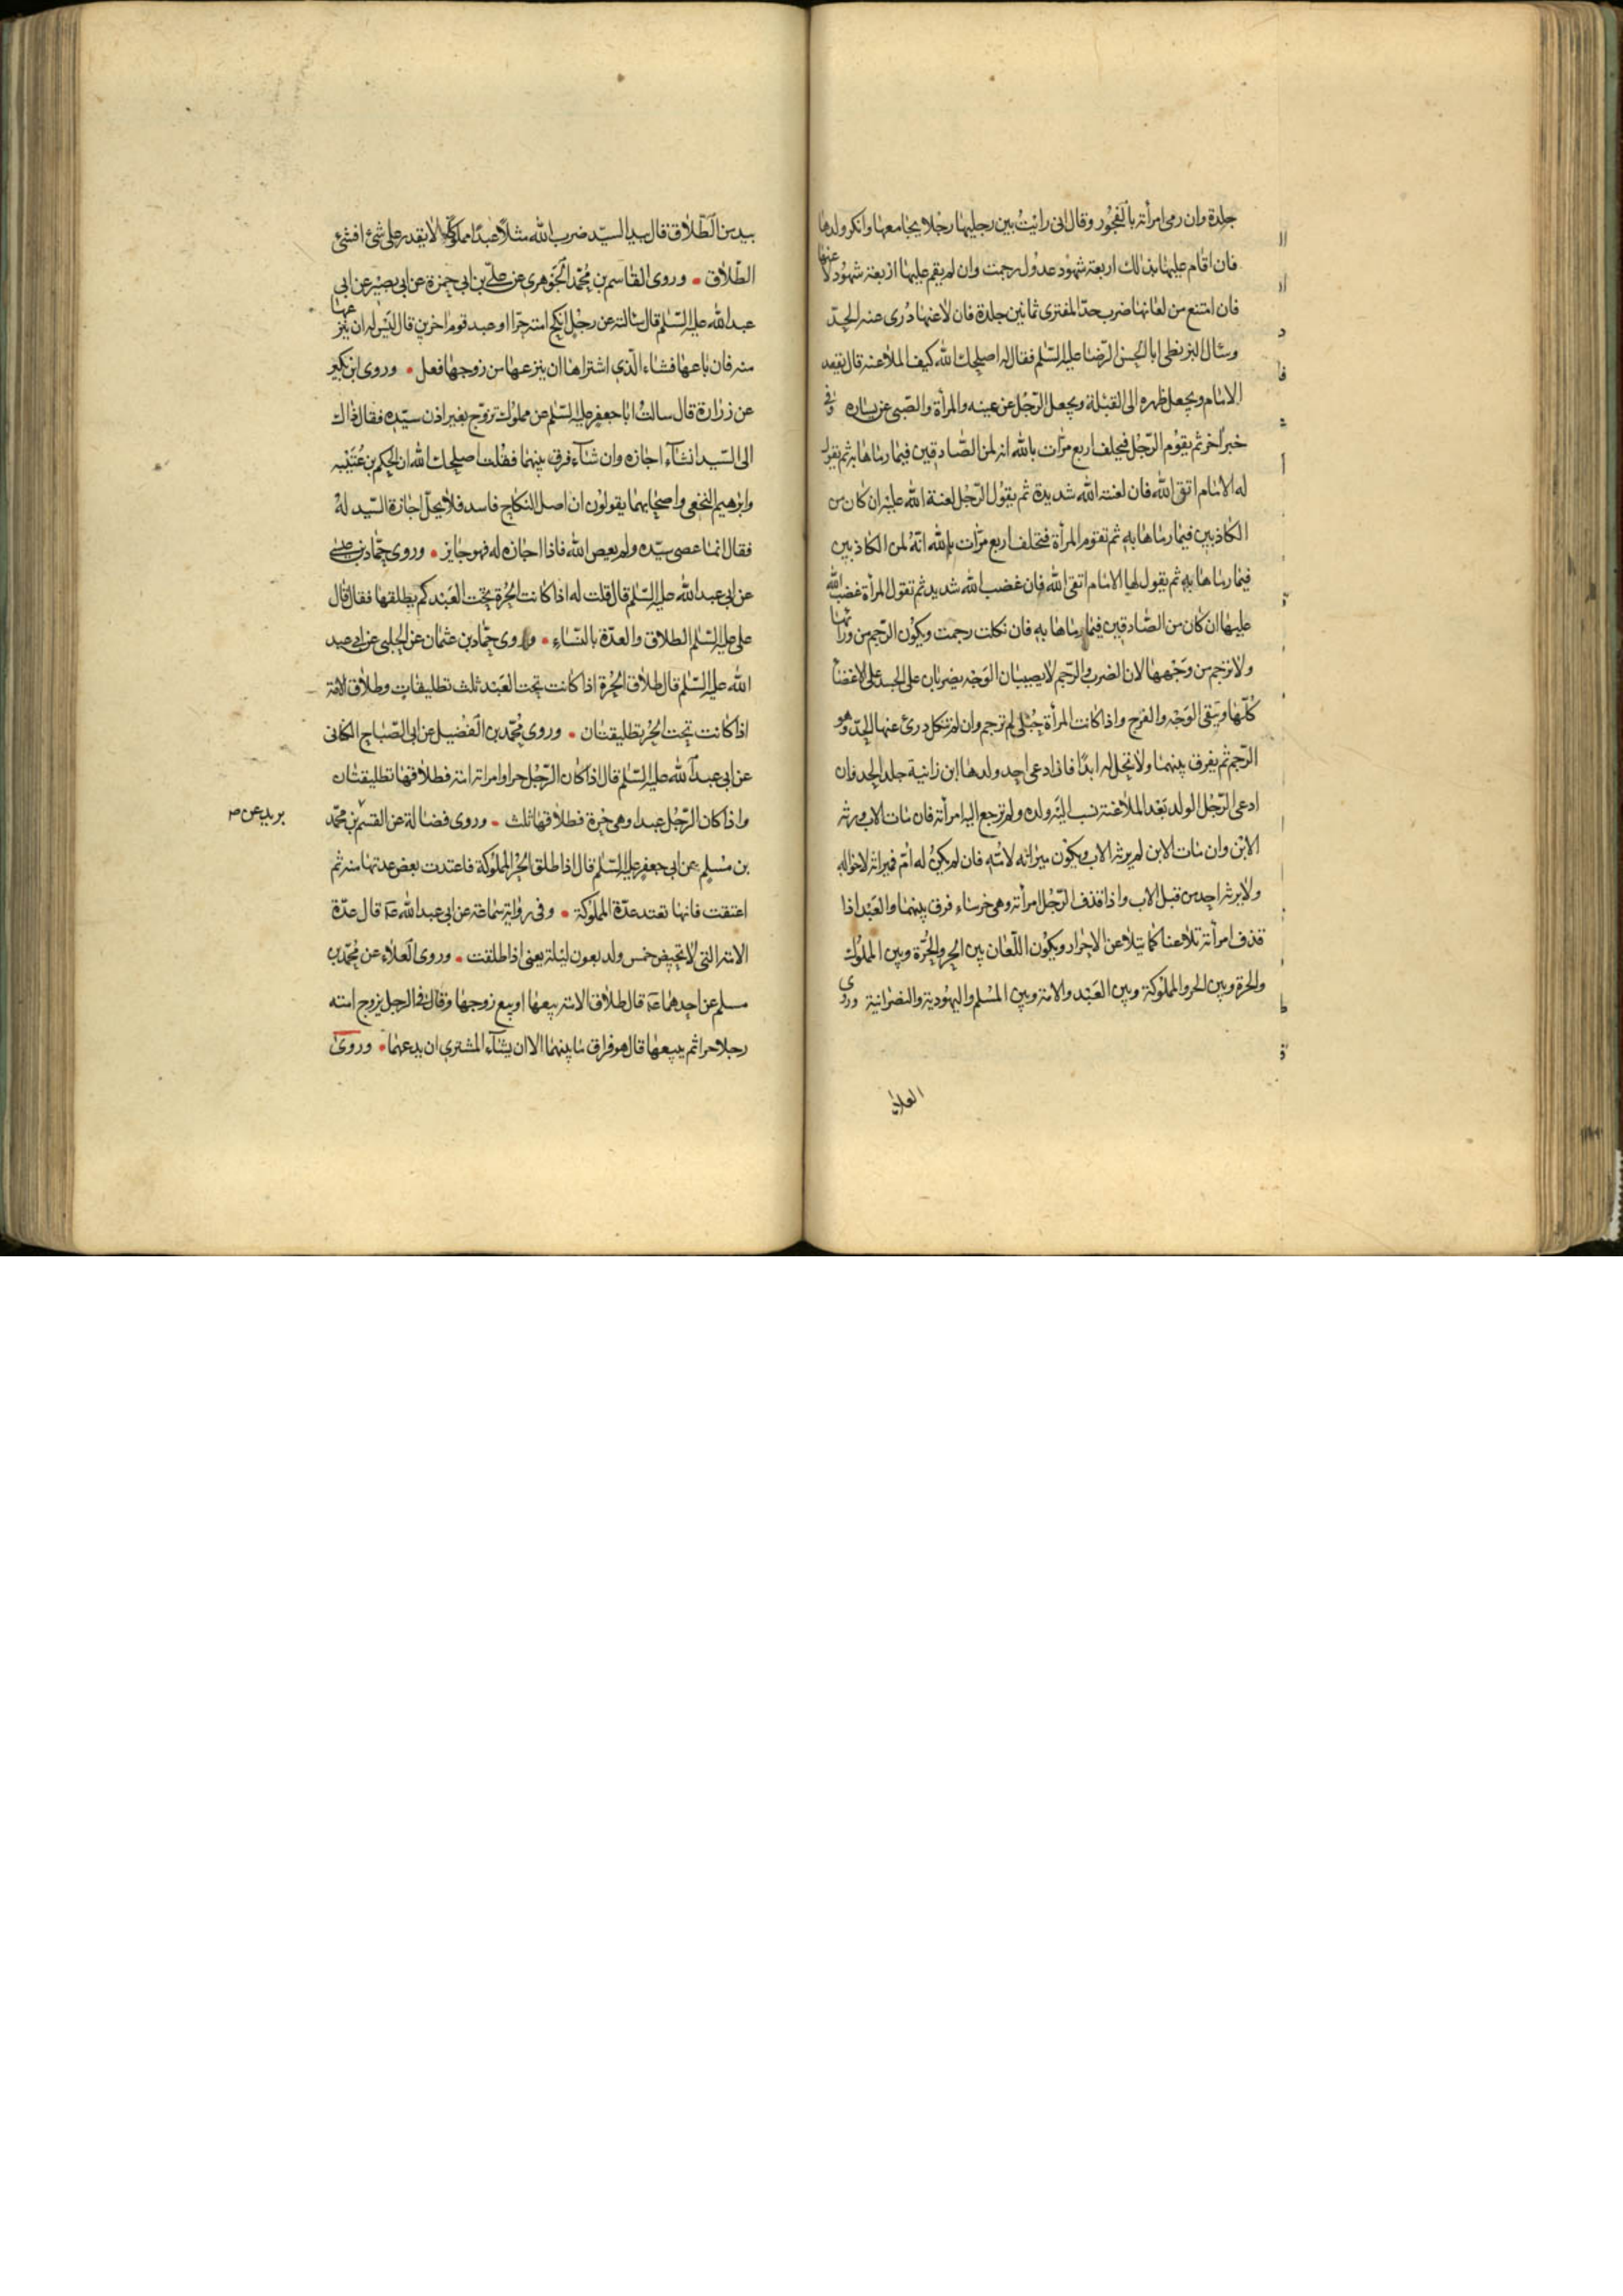 جلدة وان رمى امرأته بالفجور وقال انى رأيت بين رجليها رجلا يجامعها وانكر ولدها
فان اقام عليها بذلك اربعة شهود عدول رجمت وان لم يقم عليها اربعة شهود لاعنها
فان امتنع من لعانها ضرب حدّ المفترى ثمانين جلدة فان لاعنها دُرى عنه الحدّ
وسئال البزنطى ابا الحسن الرّضا عليه السّلم فقال له اصلحك الله كيف الملاعنه قال يقعد
الامام ويجعل ظهره الى القبلة ويجعل الرّجل عن يمينه والمرأة والصّبى عن يساره وفى
خبر اخر ثم يقوم الرّجل فيحلف اربع مرّات بالله انه لمن الصّادقين فيما رماها به ثم يقول
له الامام اتق الله فان لعنة الله شديدة ثم يقول الرّجل لعنة الله عليه ان كان من
الكاذبين فيما رماها به ثم تقوم المرأة فتحلف اربع مرّات بالله انّه لمن الكاذبين
فيما رماها به ثم يقول لها الامام اتقى الله فان غضب الله شديد ثم تقول المرأة غضب الله
عليها ان كان من الصّادقين فيما رماها به فان نكلت رجمت ويكون الرّجم من ورائها
ولا ترجم من وجهها لان الضرب والرّجم لا يصيبان الوجه يضربان على الجسد على الاعضا
كلّها ويتقى الوجه والفرج واذا كانت المرأة حبلى لم ترجم وان لم تنكل درئ عنها الحدّ وهو
الرّجم ثم يفرق بينهما ولا تحل له ابدًا فان ادعى احد ولدها ابن زانية جلد الحد فان
ادعى الرّجل الولد بعد الملاعنة نسب اليه ولده ولم ترجع اليه امرأته فان مات الاب ورثه
الابن وان مات الابن لم يرثه الاب ويكون ميراثه لامّه فان لم يكن له امّ فميراثه لاخواله
ولا يرثه احد من قبل الاب واذا قذف الرّجل امرأته وهى خرساء فرق بينهما والعبد اذا
قذف امرأته تلاعنا كما يتلاعن الاحرار ويكون اللّعان بين الحر والحرّة وبين المملوك
والحرة وبين الحر والمملوكة وبين العبد والامة وبين المسلم واليهودية والنصرانية وروى
العلاء
بيد من الطّلاق قال بيد السيّد ضرب الله مثلا عبدًا مملوكا لا يقدر على شئ افشئ
الطّلاق • وروى القاسم بن محمّد الجوهرى عن علىّ بن ابى حمزة عن ابى بصير عن ابى
عبد الله عليه السّلم قال سالته عن رجل انكح امته حرّا او عبد قوم اخرين قال ليس له ان ينزعها
منه فان باعها فشاء الّذى اشتراها ان ينزعها من زوجها فعل • وروى ابن بكير
عن زرارة قال سالت ابا جعفر عليه السّلم عن مملوك تزوّج بغير اذن سيّده فقال ذاك
الى السّيد انشآء اجازه وان شآء فرق بينهما فقلت اصلحك الله ان الحكم بن عُتَيْبه
وابرهيم النخعى واصحابهما يقولون ان اصل النكاح فاسد فلا يحلّ اجازة السّيد لهُ
فقال انما عصى سيّده ولم يعص الله فاذا اجازه له فهو جايز • وروى حمّاد بن عيسى
عن ابى عبد الله عليه السّلم قال قلت له اذا كانت الحُرة تحت العبد كم يطلقها فقال قال
على عليه السّلم الطلاق والعدّة بالنّساء • وروى حمّاد بن عثمان عن الحلبى عن ابى عبد
الله عليه السّلم قال طلاق الحُرة اذا كانت تحت العبد ثلث تطليقات وطلاق الامة
اذا كانت تحت الحُر تطليقتان • وروى محمّد بن الفضيل عن ابى الصّباح الكنانى
عن ابى عبد الله عليه السّلم قال اذا كان الرّجل حرا وامراته امة فطلاقها تطليقتان
واذا كان الرّجل عبدا وهى حرة فطلاقها ثلث • وروى فضالة عن القسم بن محمّد
بريد عن ص
بن مسلم عن ابى جعفر عليه السّلم قال اذا طلق الحُر المملوكة فاعتدت بعض عدتها منه ثم
اعتقت فانها تعتد عدّة المملوكة • وفى رواية سماعة عن ابى عبد الله ع قال عدّة
الامة التى لا تحيض خمس واربعون ليلة يعنى اذا طلقت • وروى العلاء عن محمّد بن
مسلم عن احدهما ع قال طلاق الامة بيعها او بيع زوجها وقال فى الرجل يزوج امته
رجلا حرا ثم يبيعها قال هو فراق ما بينهما الا ان يشآء المشترى ان يدعهما • وروى